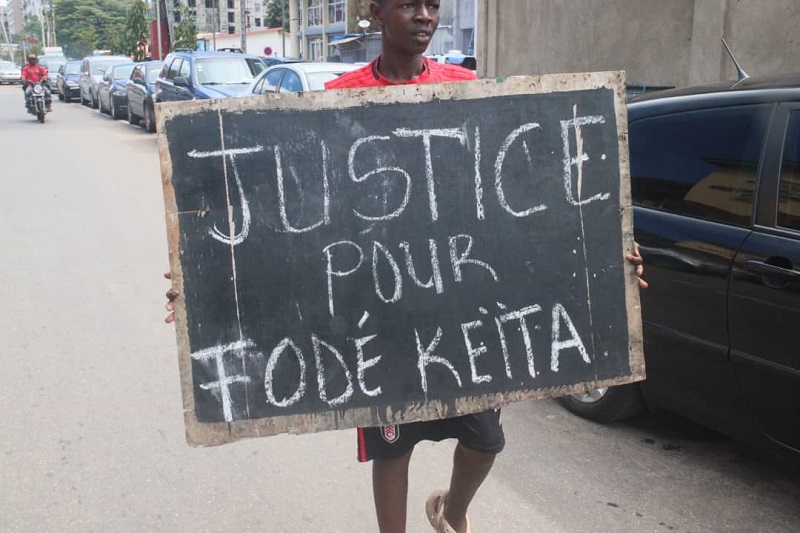 JUSTICE
POUR
FODÉ KEÏTA